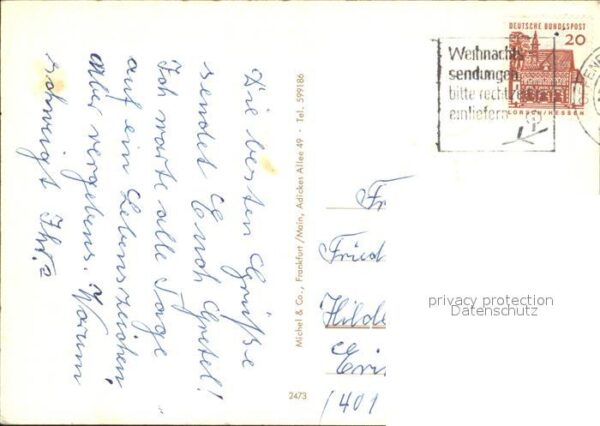 Die besten Grüße
sendet Euch Gretel!
Ich warte alle Tage
auf ein Lebenszeichen,
aber vergebens. Warum
schweigt Ihr?
Michel & Co., Frankfurt/Main, Adickes Allee 49 · Tel. 599186
2473
DEUTSCHE BUNDESPOST
20
LORSCH/HESSEN
Weihnachts
sendungen
bitte rechtzeitig
einliefern
Fr
Fried
Hilde
privacy protection
Datenschutz